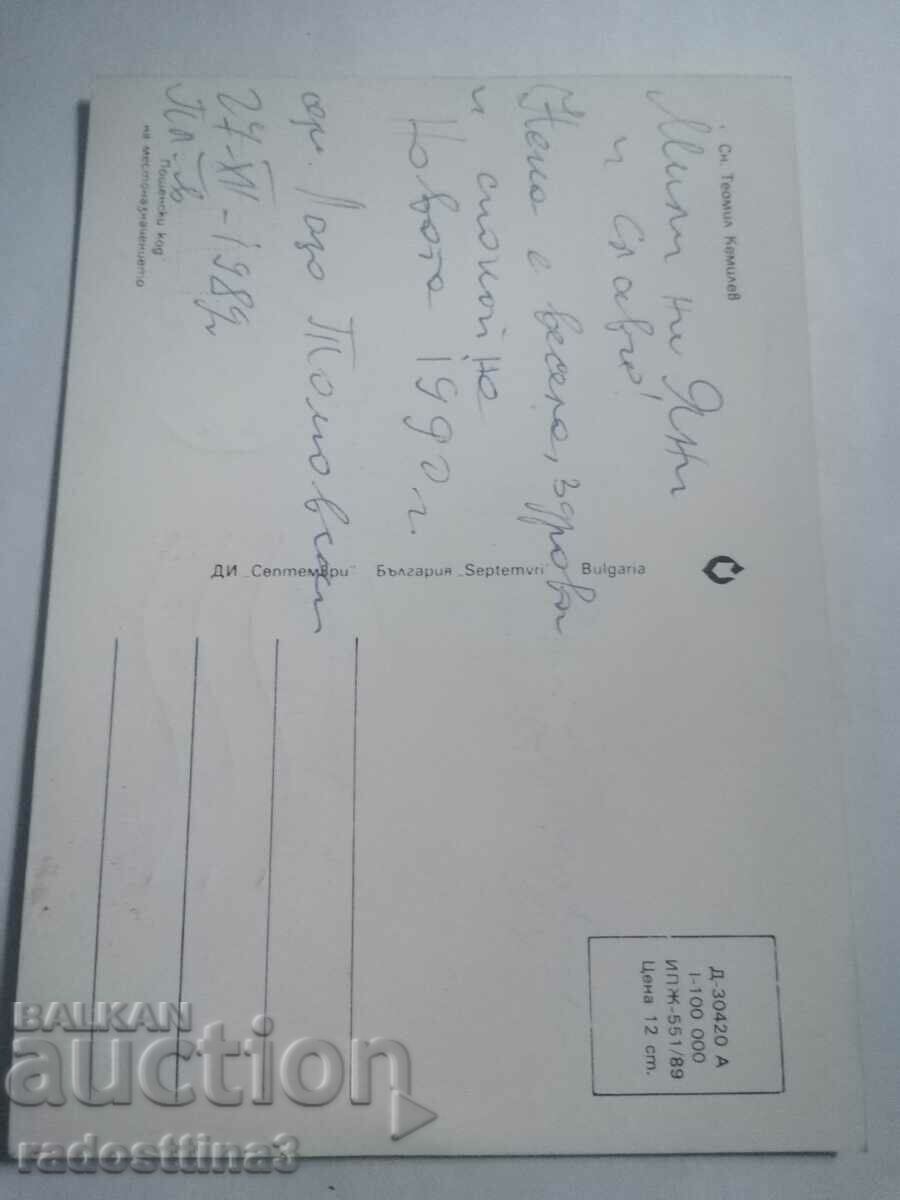 Сн. Теомил Кемилев
Мили ни Яни
и Слави!
Нека е весела, здрава
и спокойна
Новата 1990 г.
сем. Томовски
27-XII-1989
Пл-в
Пощенски код
на местоназначението
ДИ „Септември" България „Septemvri" Bulgaria
Д-30420 А
I-100 000
ИПЖ-551/89
Цена 12 ст.
BALKAN
auction
radosttina3